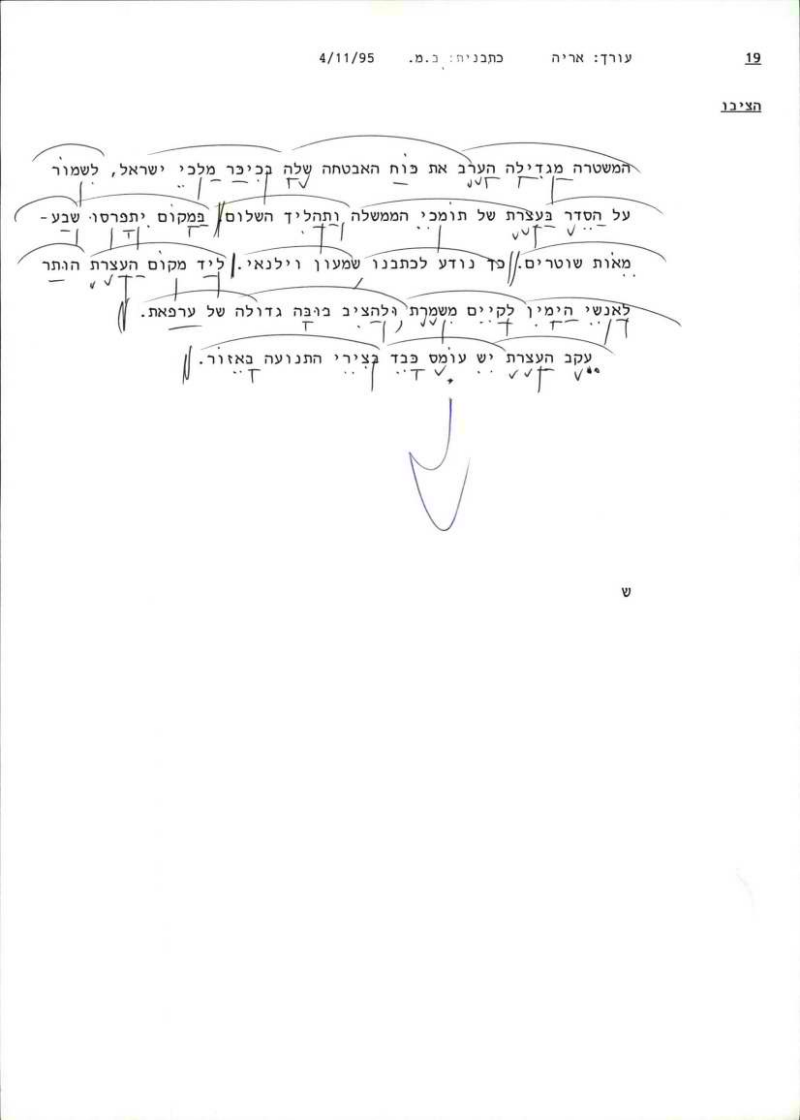 19 עורך: אריה כתבנית: ב.מ. 4/11/95
הציבו
המשטרה מגדילה הערב את כוח האבטחה שלה בכיכר מלכי ישראל, לשמור
על הסדר בעצרת של תומכי הממשלה ותהליך השלום. במקום יתפרסו שבע-
מאות שוטרים. כך נודע לכתבנו שמעון וילנאי. ליד מקום העצרת הותר
לאנשי הימין לקיים משמרת ולהציב בובה גדולה של ערפאת.
עקב העצרת יש עומס כבד בצירי התנועה באזור.
ש